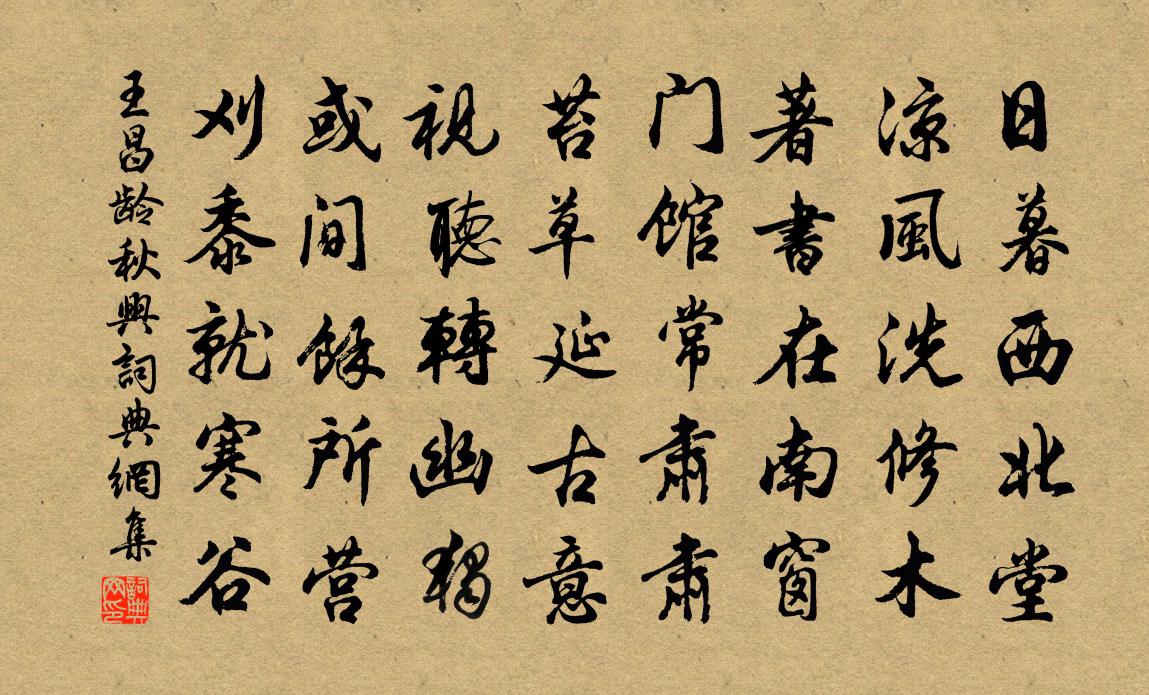 日暮西北堂
涼風洗修木
著書在南窗
门館常肅肅
苔草延古意
視聽轉幽獨
或間餘所营
刈黍就寒谷
王昌齡秋興詞典網集
詞典
网印